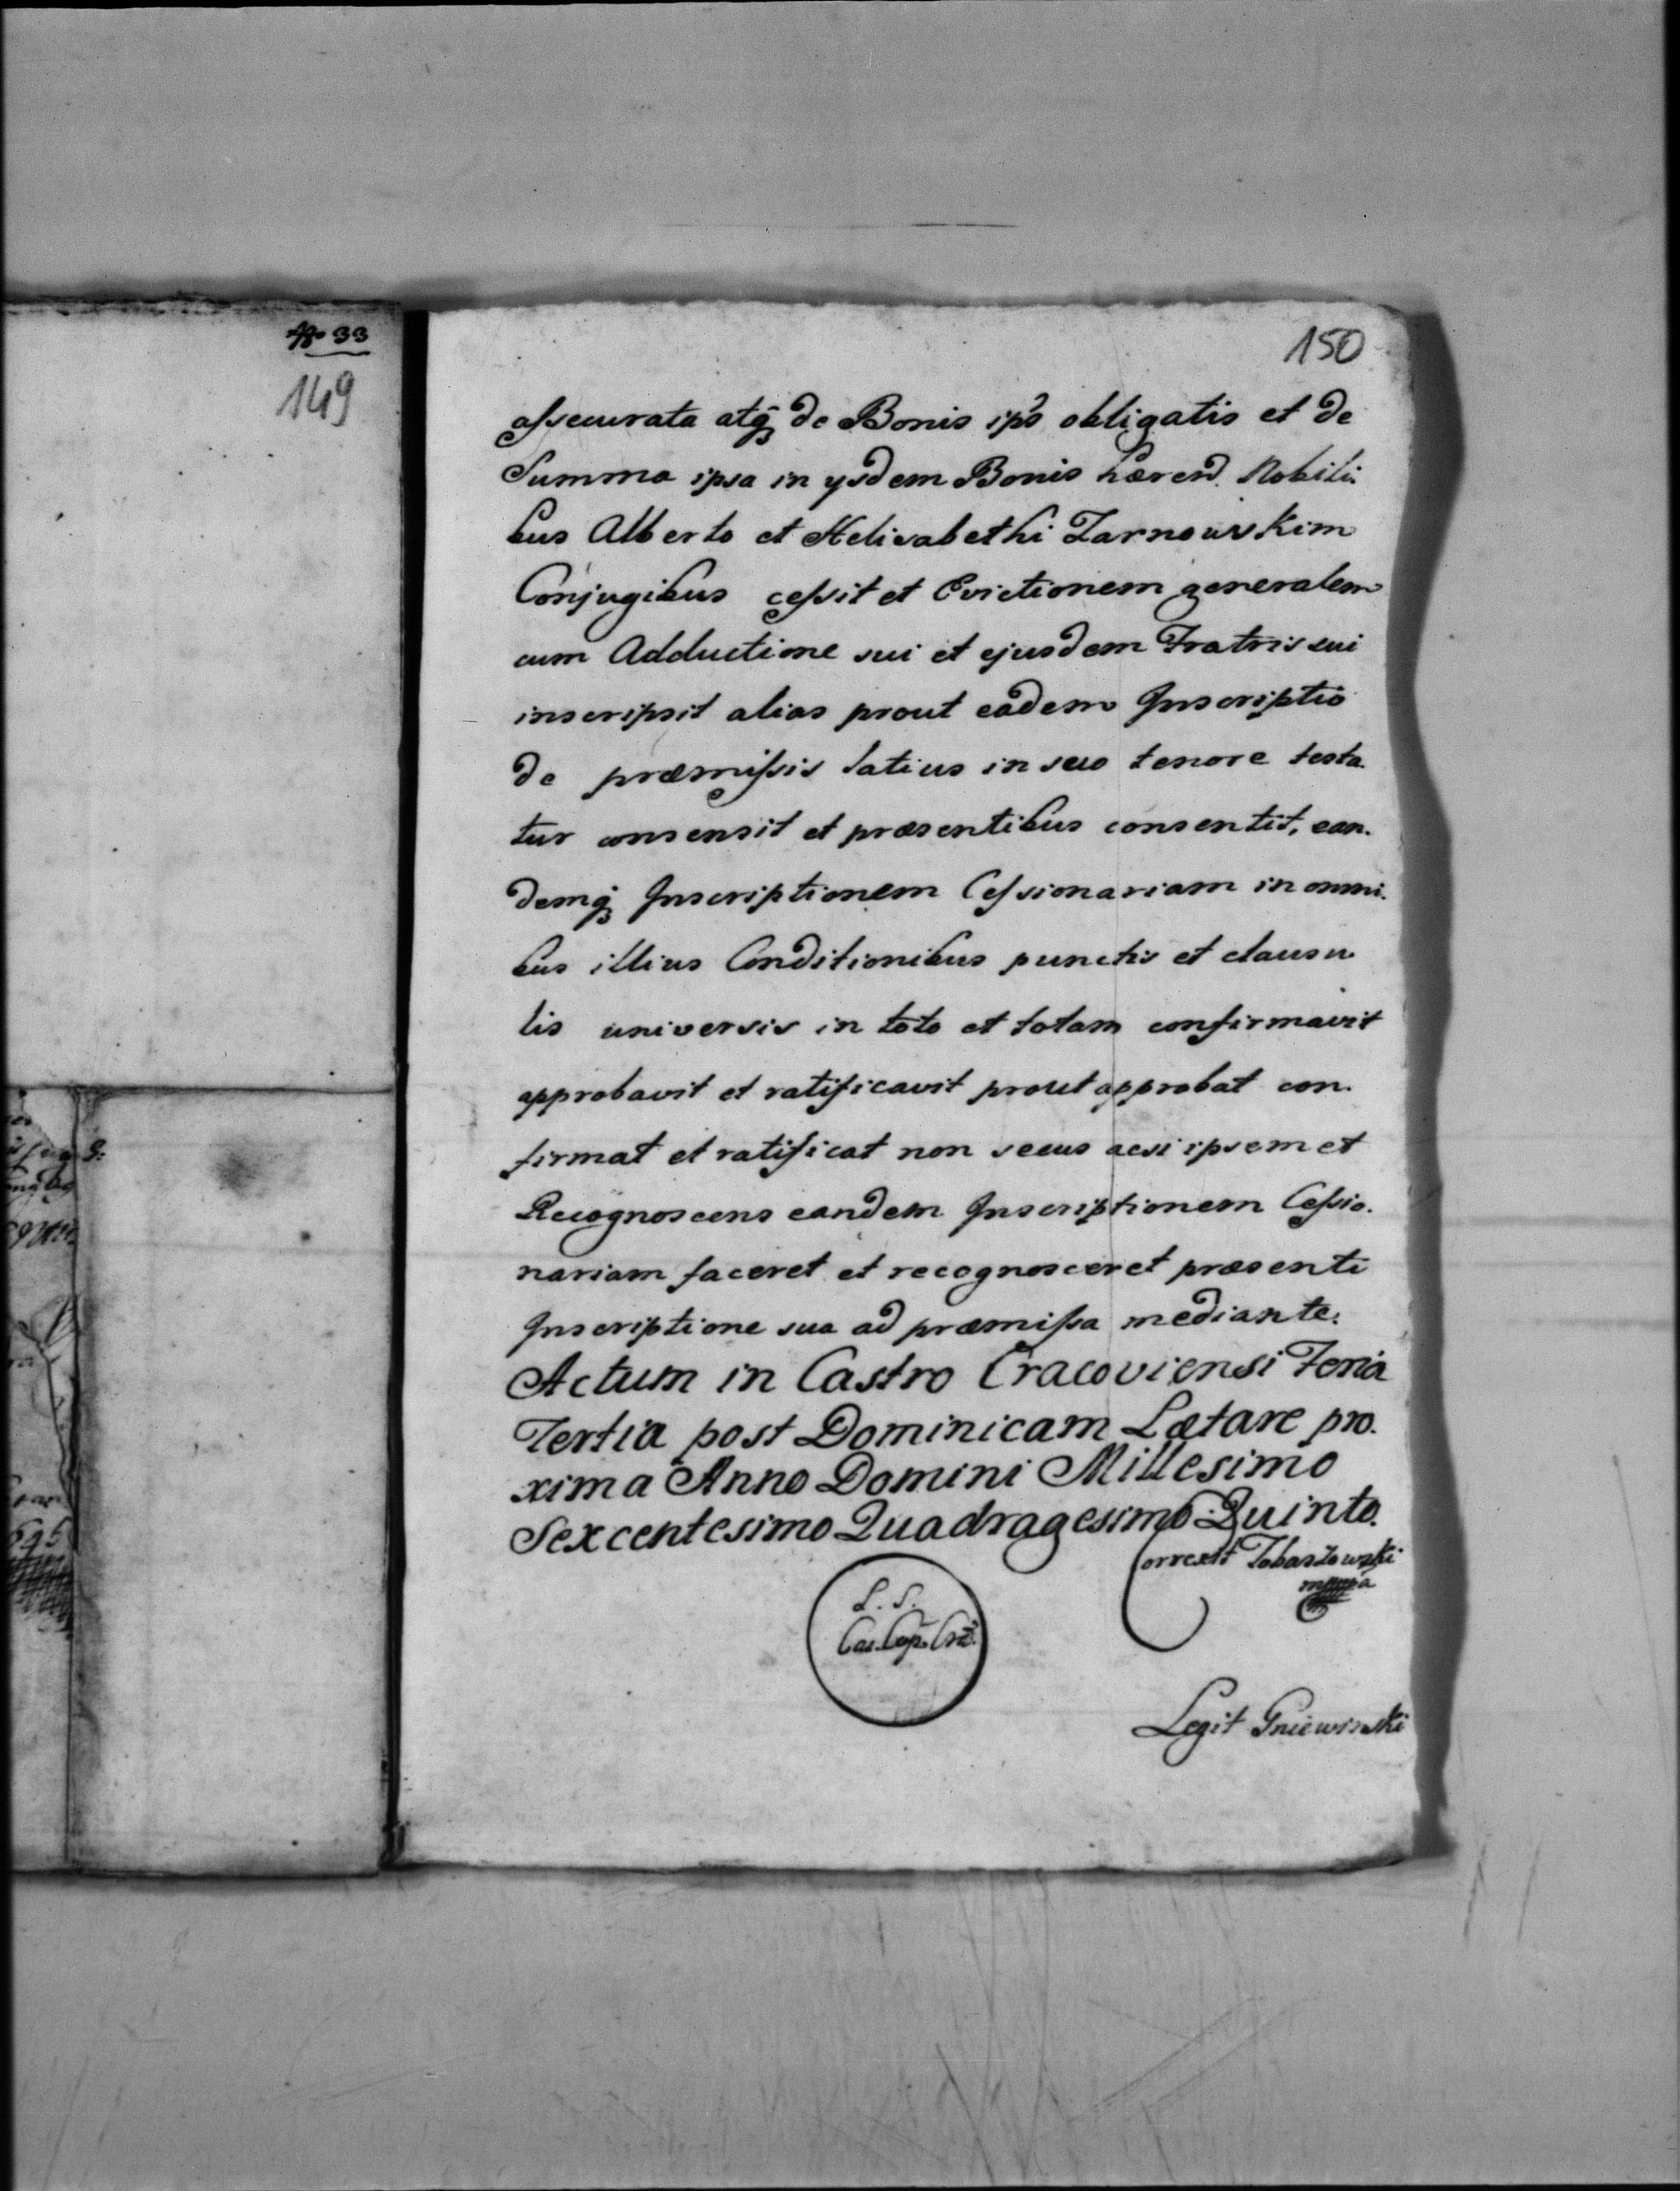 No 33
149
150
assecurata atq de Bonis ips obligatis et de
Summa ipsa in ysdem Bonis hærend. Nobili.
bus Alberto et Helisabethi Tarnowskim
Conjugibus cessit et Evictionem generalem
cum Adductione sui et ejusdem Fratris sui
inscripsit alias prout eadem Inscriptio
de præmissis latius in suo tenore testa.
tur consensit et præsentibus consentit, ean.
demq Inscriptionem Cessionariam in omni.
bus illius Conditionibus punctis et clausu
lis universis in toto et totam confirmavit
approbavit et ratificavit prout approbat con.
firmat et ratificat non secus acsi ipsemet
Recognoscens eandem Inscriptionem Cessio.
nariam faceret et recognosceret præsenti
Inscriptione sua ad præmissa mediante.
Actum in Castro Cracoviensi Feria
Tertia post Dominicam Lætare pro.
xima Anno Domini Millesimo
Sexcentesimo Quadragesimo Quinto.
Correxit
L. S.
Cas. Cap. Cra.
Legit